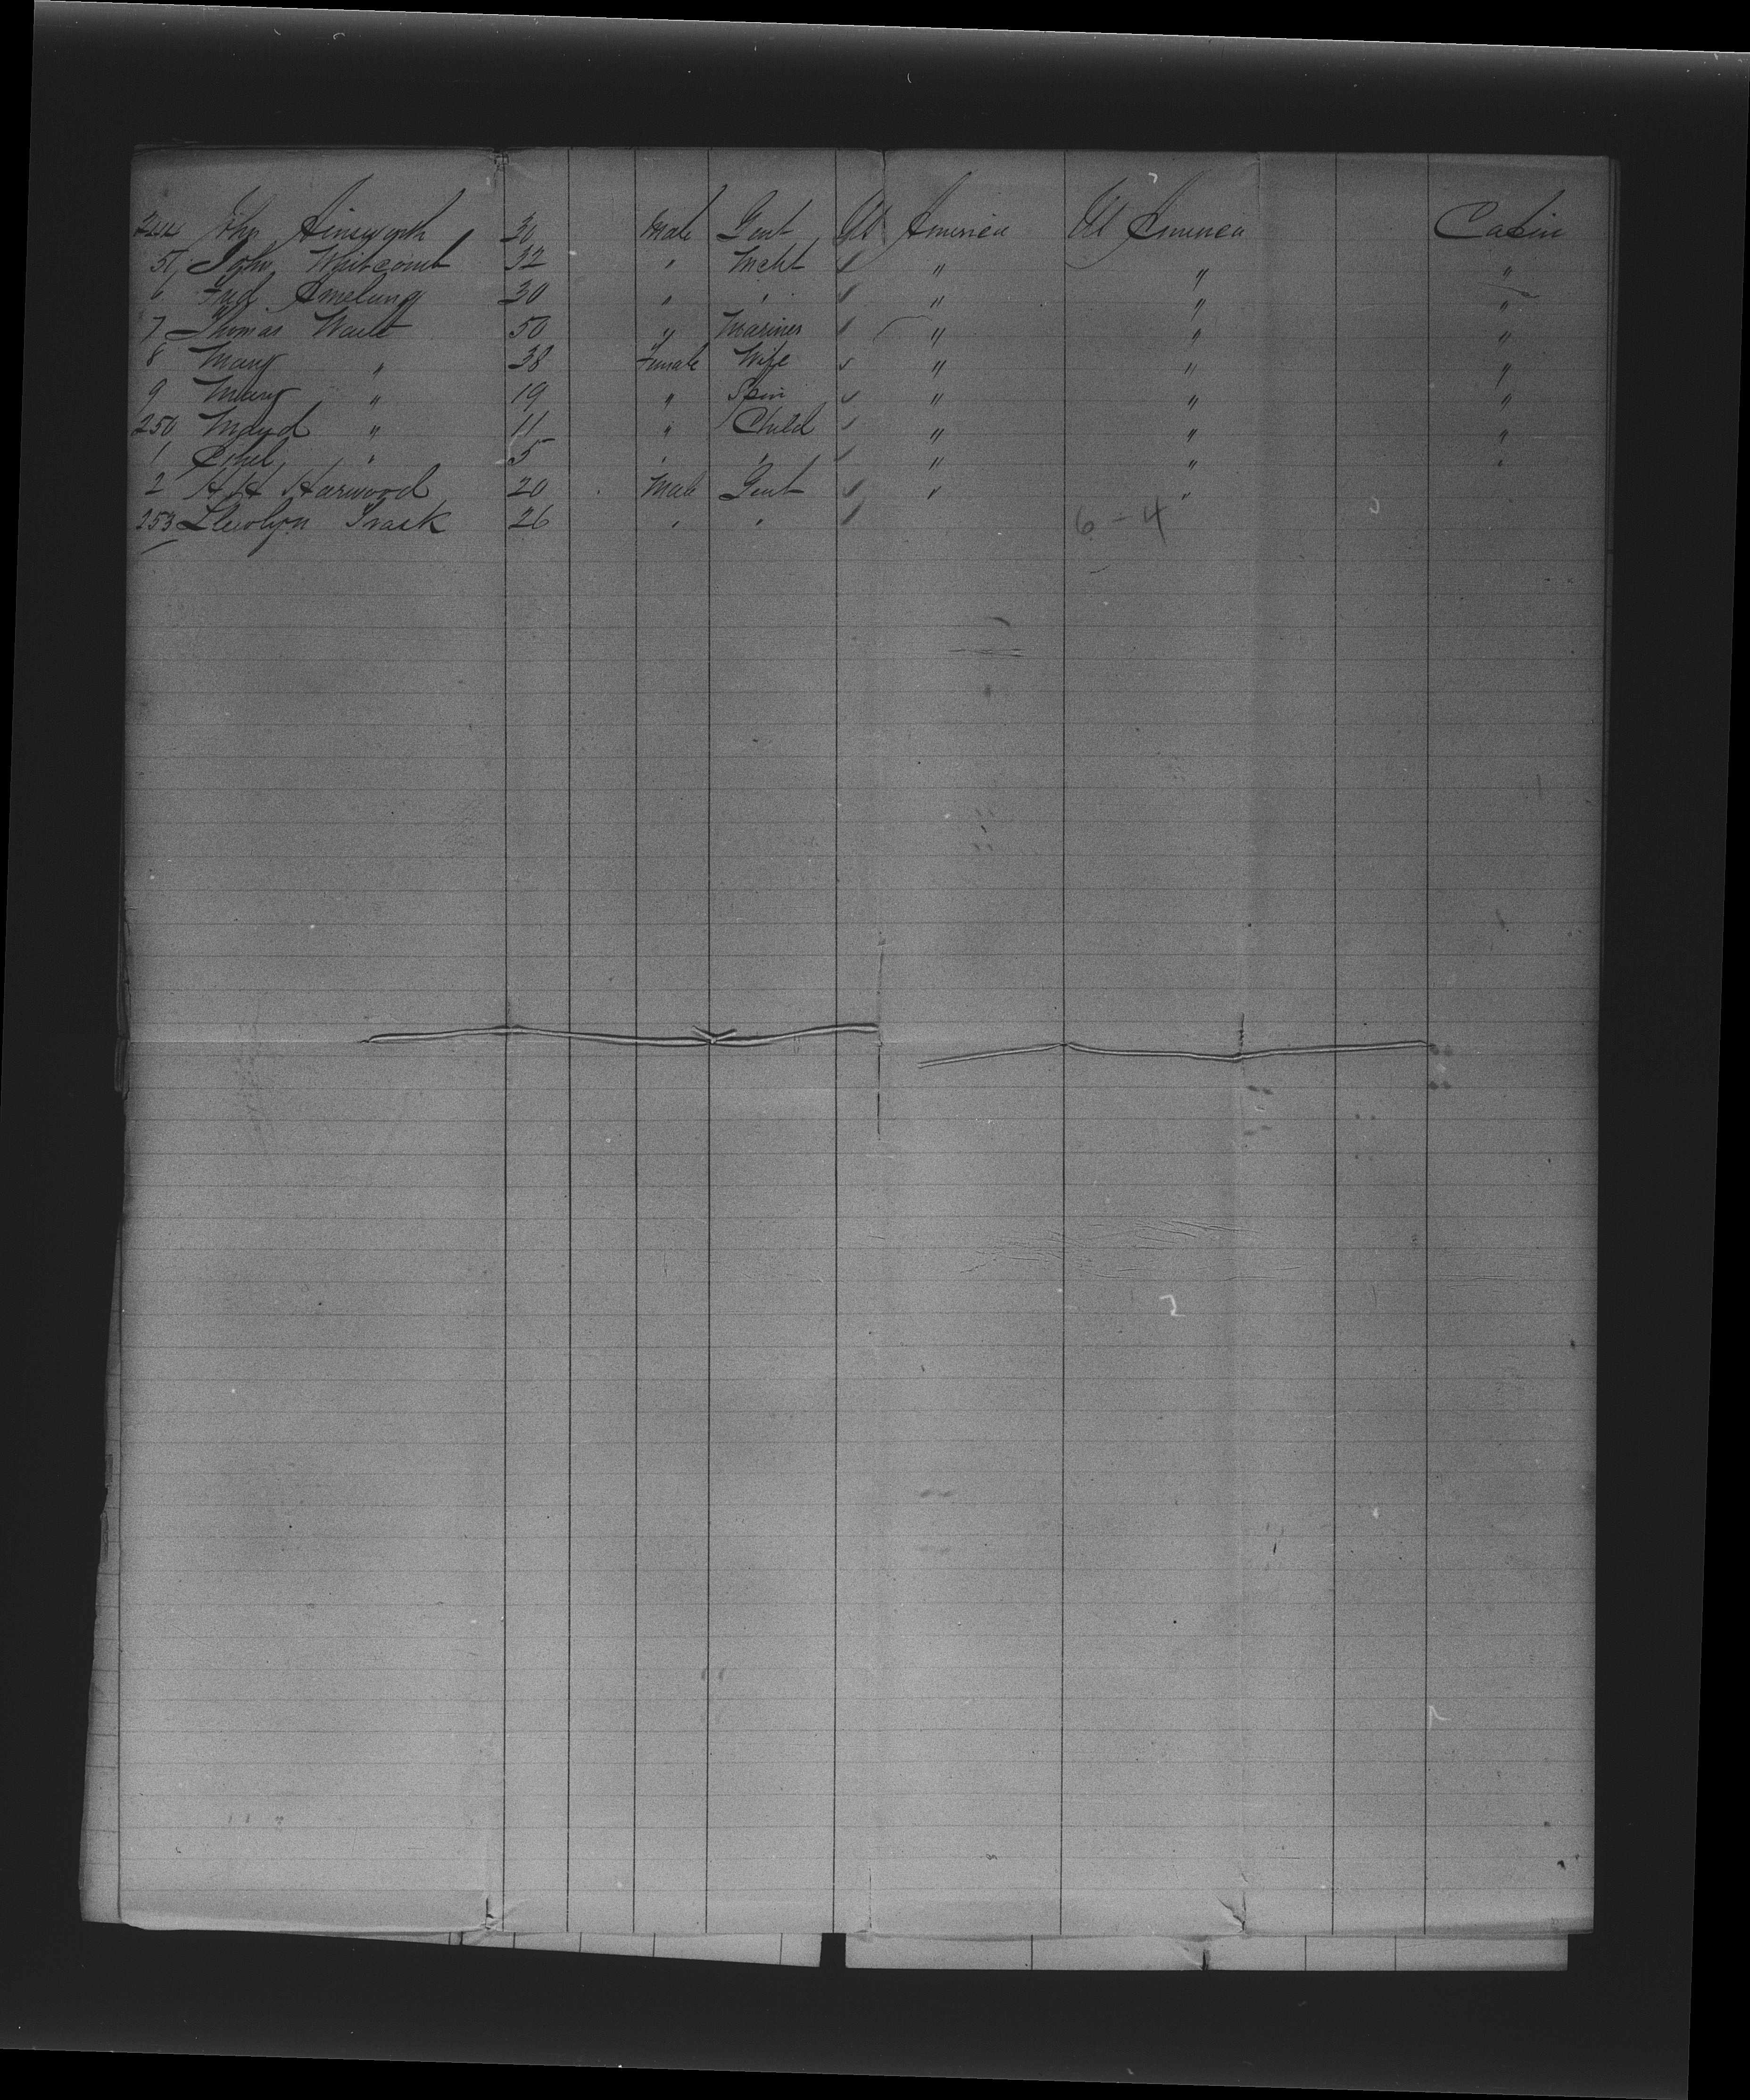 244 John Ainsworth 30 Male Gent US America US America Cabin
5 John Whitcomb 32 " Mcht " " " "
6 Fred Amelung 30 " " " " " "
7 Thomas Waite 50 " Mariner " " " "
8 Mary " 38 Female Wife " " " "
9 Mary " 19 " Spin " " " "
250 Maud " 11 " Child " " " "
1 Ethel " 5 " " " " " "
2 H H Harwood 20 Male Gent " " "
253 Llewlyn Trask 26 " " " 6-4